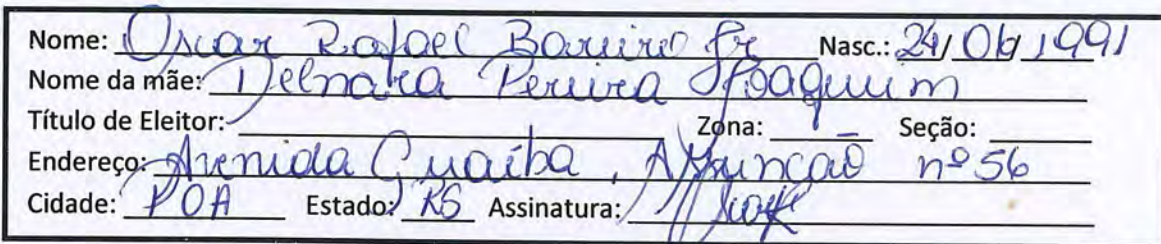 Nome: Oscar Rafael Bareiro Jr Nasc.: 24/06/1991
Nome da mãe: Delnara Pereira Joaquim
Título de Eleitor: Zona: - Seção:
Endereço: Avenida Guaíba, Assunção nº 56
Cidade: POA Estado: RS Assinatura: